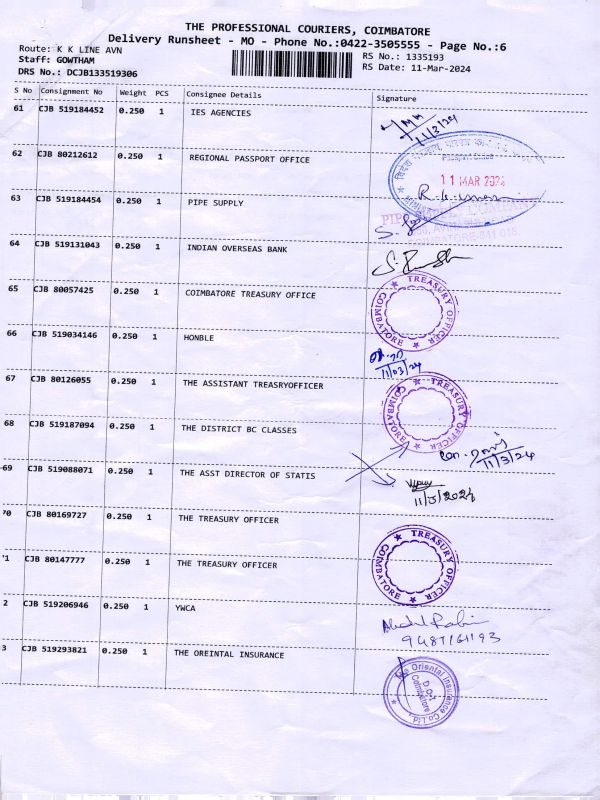 THE PROFESSIONAL COURIERS, COIMBATORE
Delivery Runsheet - MO - Phone No.:0422-3505555 - Page No.:6
Route: K K LINE AVN
RS No.: 1335193
Staff: GOWTHAM
RS Date: 11-Mar-2024
DRS No.: DCJB133519306
S No Consignment No Weight PCS Consignee Details Signature
61 CJB 519184452 0.250 1 IES AGENCIES
11/3/24
62 CJB 80212612 0.250 1 REGIONAL PASSPORT OFFICE
11 MAR 2024
63 CJB 519184454 0.250 1 PIPE SUPPLY
64 CJB 519131043 0.250 1 INDIAN OVERSEAS BANK
65 CJB 80057425 0.250 1 COIMBATORE TREASURY OFFICE
TREASURY OFFICER COIMBATORE
66 CJB 519034146 0.250 1 HONBLE
11/03/24
67 CJB 80126055 0.250 1 THE ASSISTANT TREASRYOFFICER
TREASURY OFFICER COIMBATORE
68 CJB 519187094 0.250 1 THE DISTRICT BC CLASSES
11/3/24
69 CJB 519088071 0.250 1 THE ASST DIRECTOR OF STATIS
11/3/2024
70 CJB 80169727 0.250 1 THE TREASURY OFFICER
TREASURY OFFICER COIMBATORE
71 CJB 80147777 0.250 1 THE TREASURY OFFICER
2 CJB 519206946 0.250 1 YWCA
3 CJB 519293821 0.250 1 THE OREINTAL INSURANCE
The Oriental Insurance Co Ltd
Coimbatore